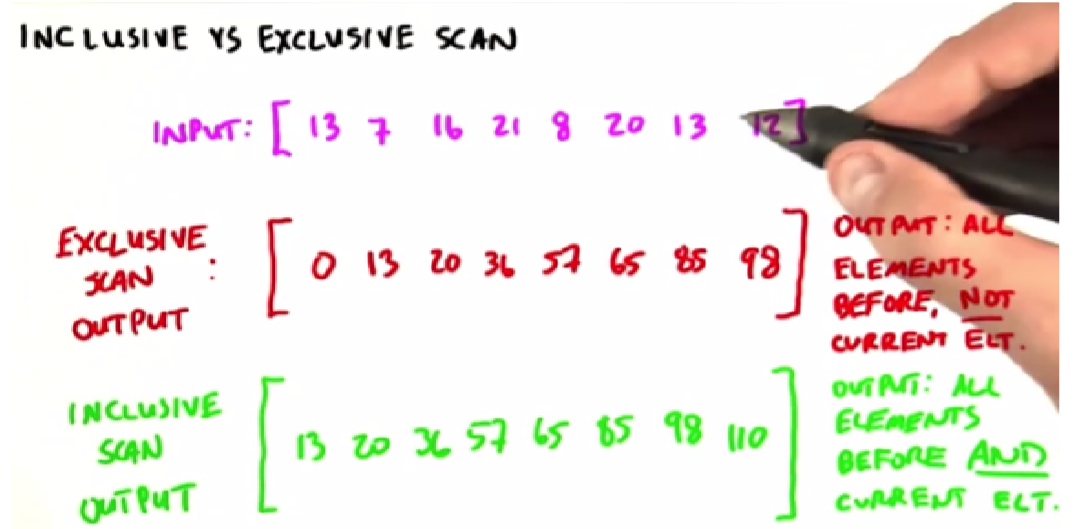 INCLUSIVE VS EXCLUSIVE SCAN
INPUT: [ 13 7 16 21 8 20 13 12 ]
EXCLUSIVE
SCAN :
OUTPUT
[ 0 13 20 36 57 65 85 98 ]
OUTPUT: ALL
ELEMENTS
BEFORE, NOT
CURRENT ELT.
INCLUSIVE
SCAN
OUTPUT
[ 13 20 36 57 65 85 98 110 ]
OUTPUT: ALL
ELEMENTS
BEFORE AND
CURRENT ELT.